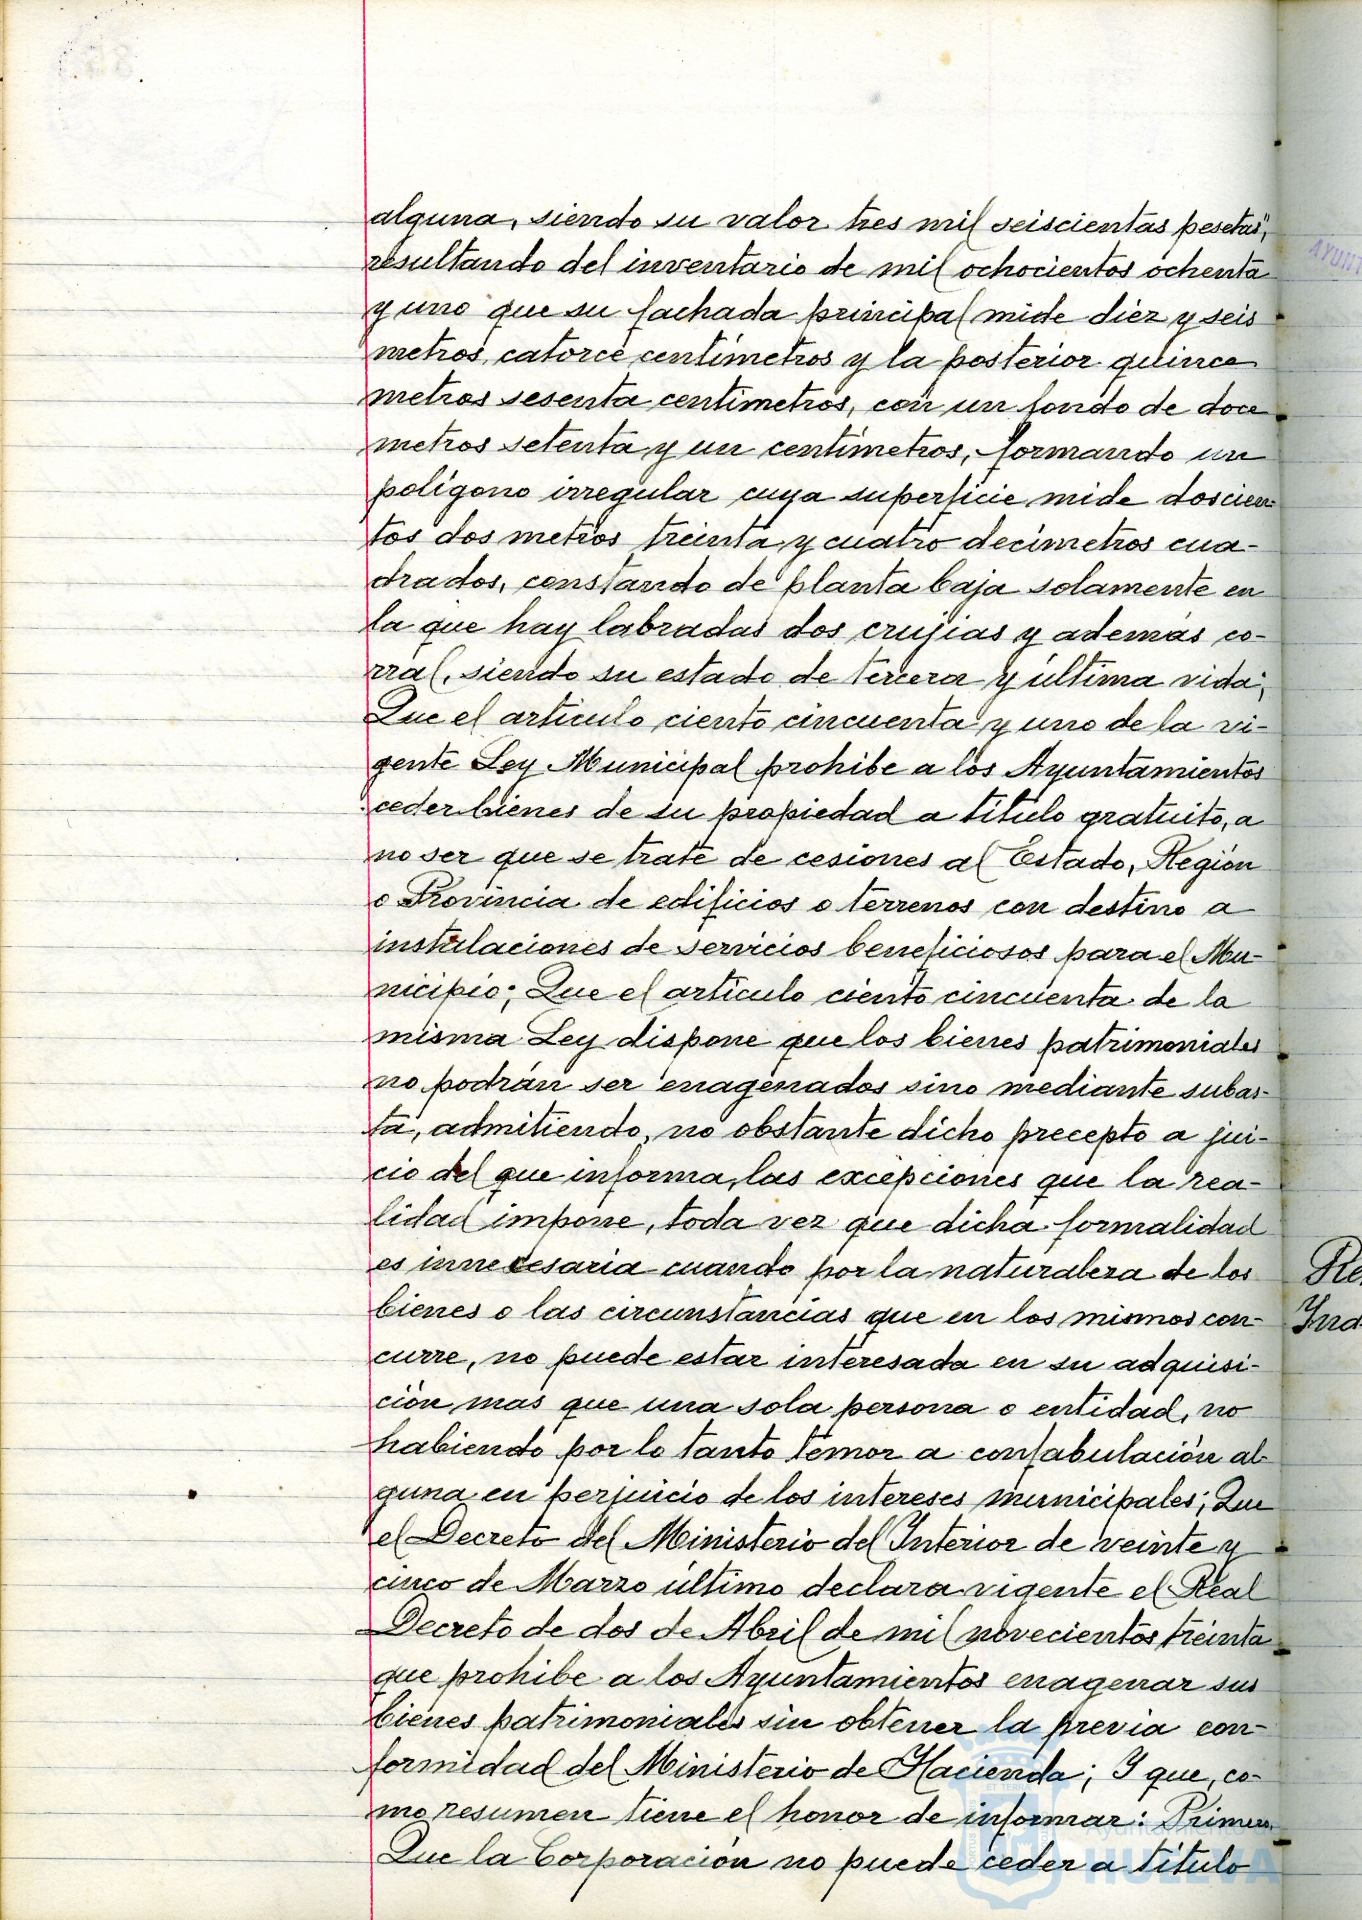 alguna, siendo su valor tres mil seiscientas pesetas",
resultando del inventario de mil ochocientos ochenta
y uno que su fachada principal mide diez y seis
metros, catorce centímetros y la posterior quince
metros sesenta centímetros, con un fondo de doce
metros setenta y un centímetros, formando un
polígono irregular cuya superficie mide doscien-
tos dos metros treinta y cuatro decímetros cua-
drados, constando de planta baja solamente en
la que hay labradas dos crujias y además co-
rral, siendo su estado de tercera y última vida;
Que el artículo ciento cincuenta y uno de la vi-
gente Ley Municipal prohibe a los Ayuntamientos
ceder bienes de su propiedad a título gratuito, a
no ser que se trate de cesiones al Estado, Región
o Provincia de edificios o terrenos con destino a
instalaciones de servicios beneficiosos para el Mu-
nicipio; Que el artículo ciento cincuenta de la
misma Ley dispone que los bienes patrimoniales
no podrán ser enagenados sino mediante subas-
ta, admitiendo, no obstante dicho precepto a jui-
cio del que informa, las excepciones que la rea-
lidad impone, toda vez que dicha formalidad
es innecesaria cuando por la naturaleza de los
bienes o las circunstancias que en los mismos con-
curre, no puede estar interesada en su adquisi-
ción mas que una sola persona o entidad, no
habiendo por lo tanto temor a confabulación al-
guna en perjuicio de los intereses municipales; Que
el Decreto del Ministerio del Interior de veinte y
cinco de Marzo último declara vigente el Real
Decreto de dos de Abril de mil novecientos treinta
que prohibe a los Ayuntamientos enagenar sus
bienes patrimoniales sin obtener la previa con-
formidad del Ministerio de Hacienda; Y que, co-
mo resumen tiene el honor de informar: Primero.
Que la Corporación no puede ceder a título
AYUNT
Re
Ina
Ayuntamiento
HUELVA